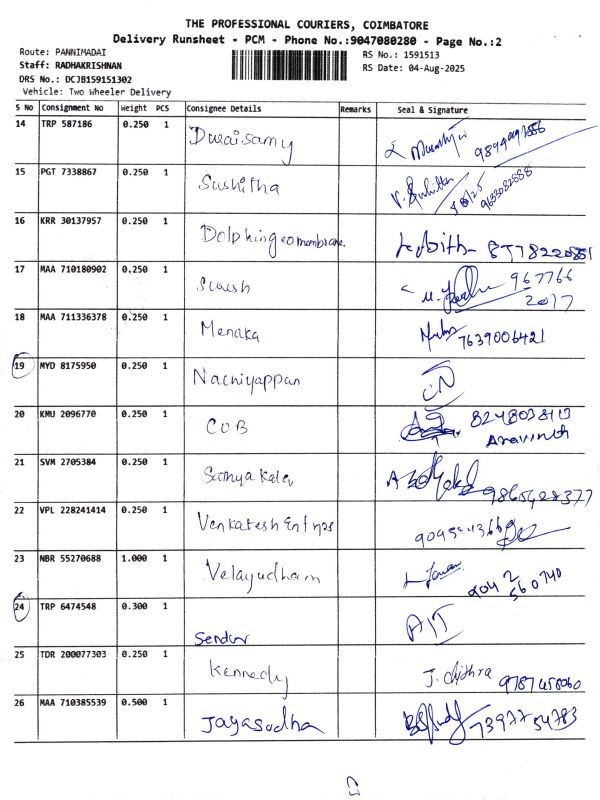 THE PROFESSIONAL COURIERS, COIMBATORE
Delivery Runsheet - PCM - Phone No.:9047080280 - Page No.:2
Route: PANNIMADAI
RS No.: 1591513
Staff: RADHAKRISHNAN
RS Date: 04-Aug-2025
DRS No.: DCJB159151302
Vehicle: Two Wheeler Delivery
S No Consignment No Weight PCS Consignee Details Remarks Seal & Signature
14 TRP 587186 0.250 1 Duraisamy
15 PGT 7338867 0.250 1 Sushitha
16 KRR 30137957 0.250 1 Dolphingeomembrane
17 MAA 710180902 0.250 1 Suresh 967766
2017
18 MAA 711336378 0.250 1 Menaka 7639006421
19 MYD 8175950 0.250 1 Nachiyappan
20 KMU 2096770 0.250 1 COB 8248038113
Aravinth
21 SVM 2705384 0.250 1 Sathya Kala
22 VPL 228241414 0.250 1 Venkatesh
23 NBR 55270688 1.000 1 Velayudham 9042
560740
24 TRP 6474548 0.300 1 Sendur
25 TDR 200077303 0.250 1 Kennedy J. Chithra 9787458060
26 MAA 710385539 0.500 1 Jayasudha 7397754783